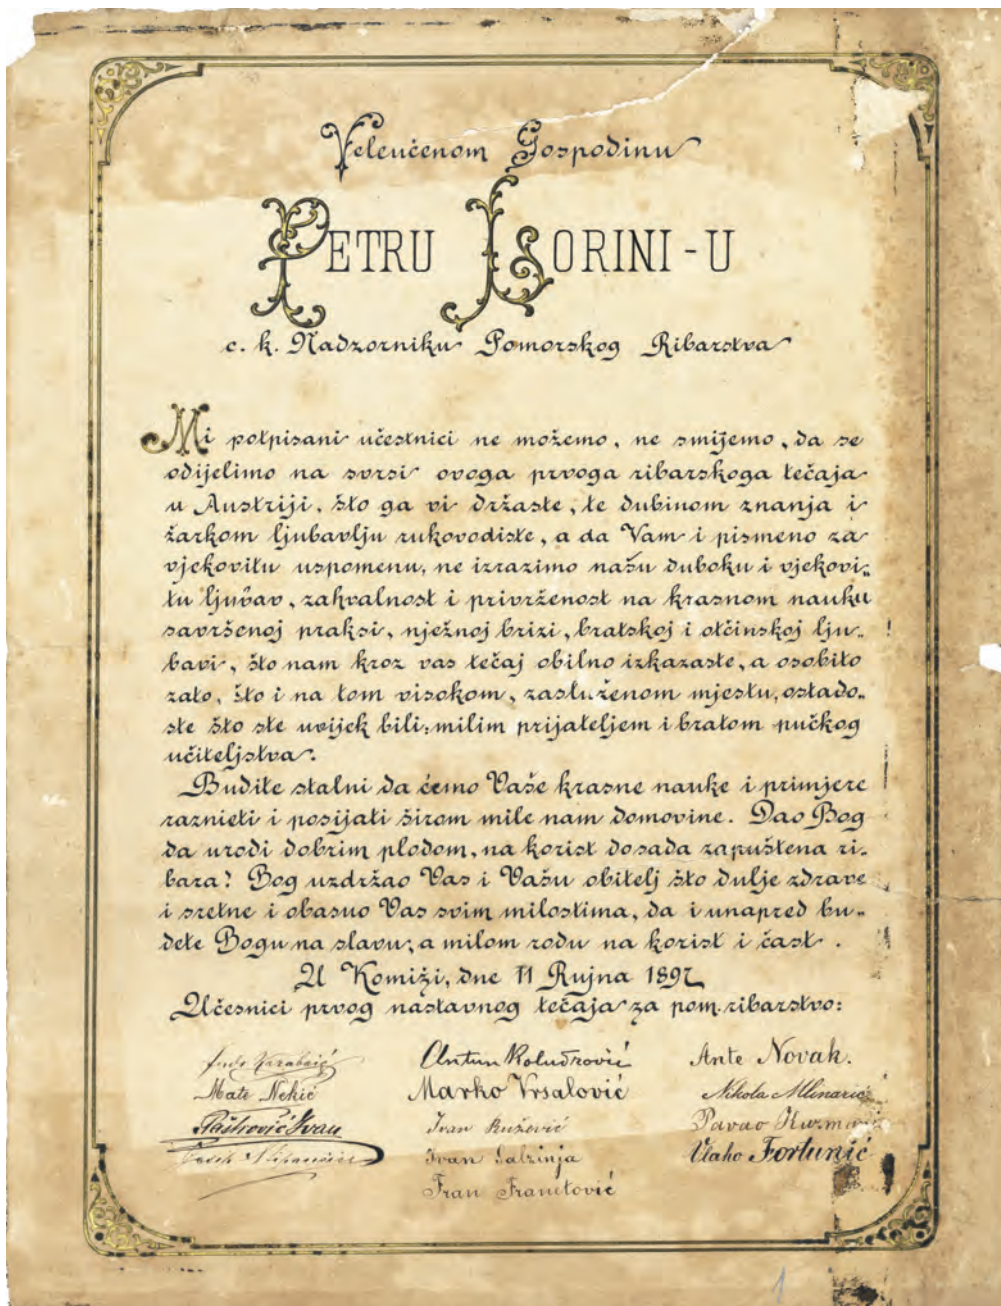 Veleučenom Gospodinu
PETRU LORINI-U
c. k. Nadzorniku Pomorskog Ribarstva
Mi potpisani učestnici ne možemo, ne smijemo, da se
odijelimo na svrsi ovoga prvoga ribarskoga tečaja
u Austriji, što ga vi držaste, te dubinom znanja i
žarkom ljubavlju rukovodiste, a da Vam i pismeno za
vjekovitu uspomenu, ne izrazimo našu duboku i vjekovi„
tu ljubav, zahvalnost i privrženost na krasnom nauku
savršenoj praksi, nježnoj brizi, bratskoj i otčinskoj lju„
bavi, što nam kroz vas tečaj obilno izkazaste, a osobito
zato, što i na tom visokom, zasluženom mjestu, ostado„
ste što ste uvijek bili: milim prijateljem i bratom pučkog
učiteljstva.
Budite stalni da ćemo Vaše krasne nauke i primjere
raznieti i posijati širom mile nam domovine. Dao Bog
da urodi dobrim plodom, na korist dosada zapuštena ri„
bara! Bog uzdržao Vas i Vašu obitelj što dulje zdrave
i sretne i obasuo Vas svim milostima, da i unapred bu„
dete Bogu na slavu, a milom rodu na korist i čast.
U Komiži, dne 11 Rujna 1897
Učesnici prvog nastavnog tečaja za pom. ribarstvo:
Antun Koludrović Ante Novak.
Mate Nekić Marko Vrsalović Nikola Mlinarić
Paštrović Ivan Ivan Ružević Pavao
Ivan Fran Franetović Vlaho Fortunić
1